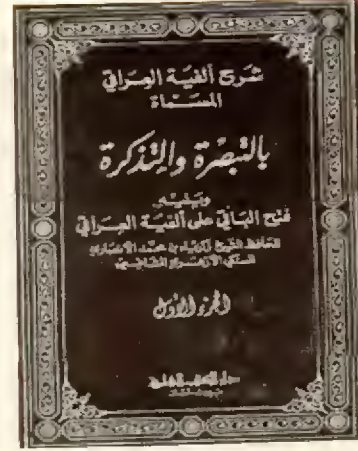 شرح ألفية العراقي
المسماة
بالتبصرة والتذكرة
ويليه
فتح الباقي على ألفية العراقي
للحافظ الشيخ زكريا بن محمد الأنصاري
السنكي الأزهري الشافعي
الجزء الأول
دار الكتب العلمية